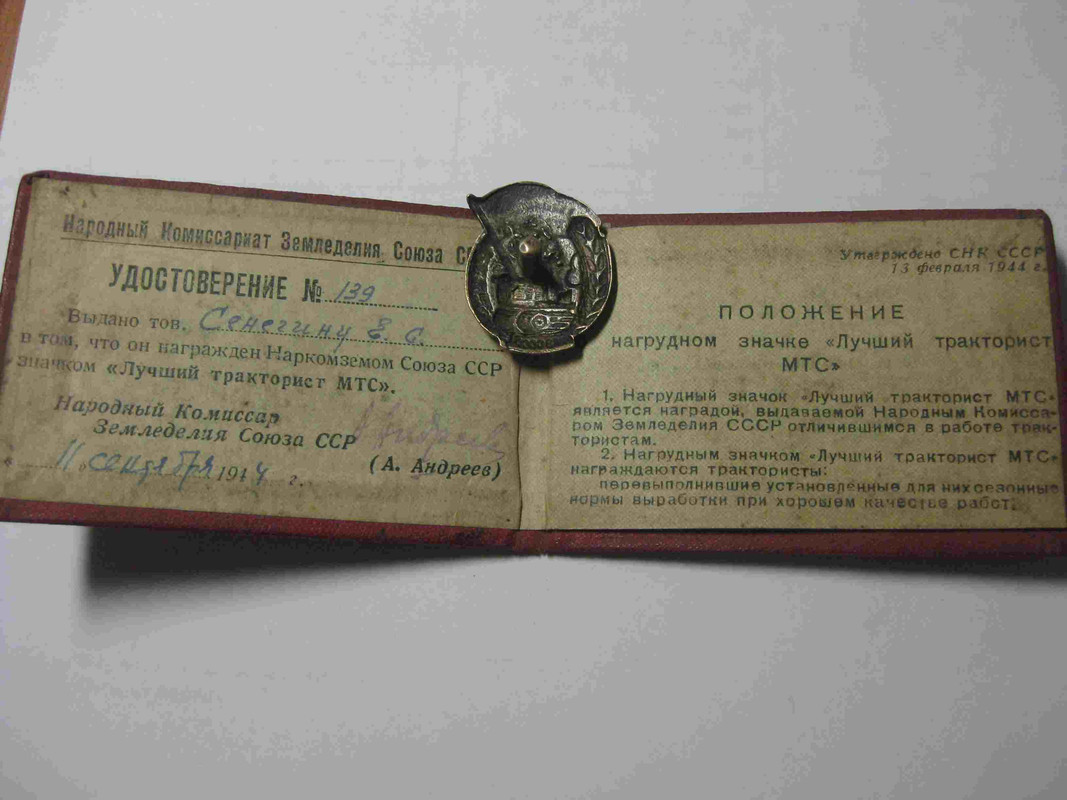 Народный Комиссариат Земледелия Союза
УДОСТОВЕРЕНИЕ № 139
Выдано тов. Сенегину Е. С.
в том, что он награжден Наркомземом Союза ССР
значком «Лучший тракторист МТС».
Народный Комиссар
Земледелия Союза ССР
(А. Андреев)
« 11 » сентября 1944 г.
Утверждено СНК СССР
13 февраля 1944 г.
ПОЛОЖЕНИЕ
нагрудном значке «Лучший тракторист
МТС»
1. Нагрудный значок «Лучший тракторист МТС»
является наградой, выдаваемой Народным Комисса-
ром Земледелия СССР отличившимся в работе трак-
тористам.
2. Нагрудным значком «Лучший тракторист МТС»
награждаются трактористы:
перевыполнившие установленные для них сезонные
нормы выработки при хорошем качестве работ.